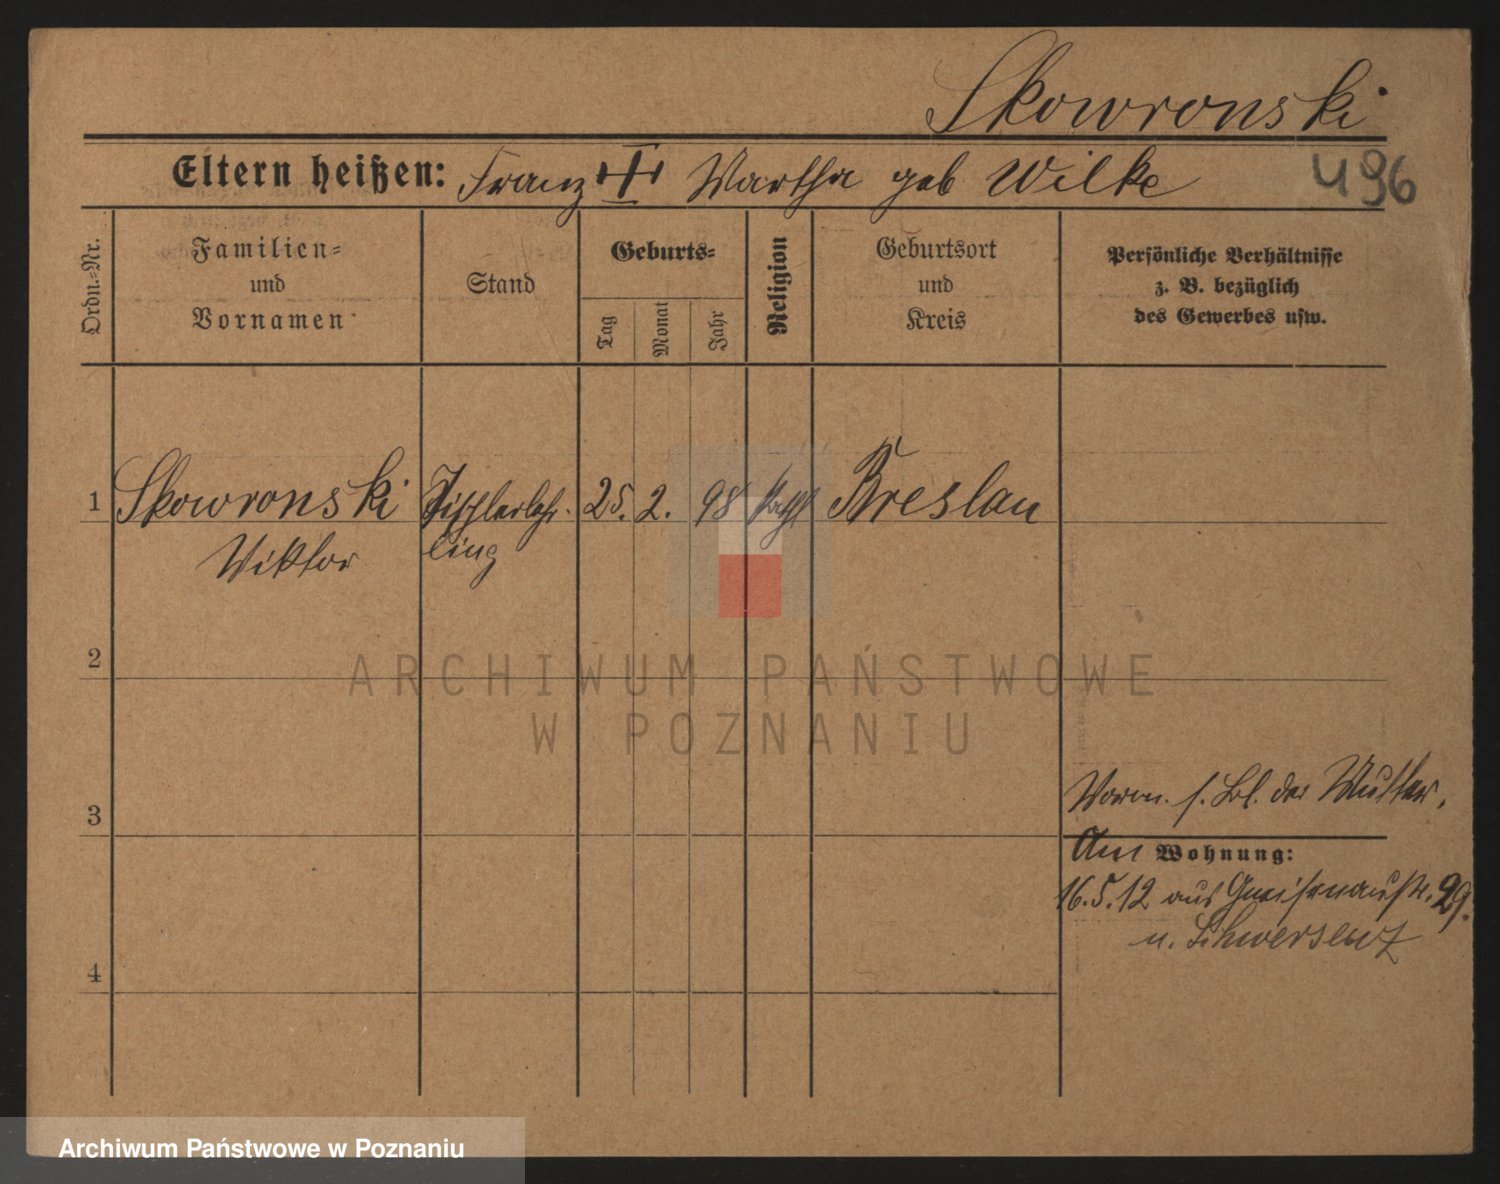 Skowronski
Eltern heißen: Franz Martha geb Wilke
496
Ordn.-Nr.
Familien-
und
Vornamen
Stand
Geburts-
Tag
Monat
Jahr
Religion
Geburtsort
und
Kreis
Persönliche Verhältnisse
z. B. bezüglich
des Gewerbes usw.
1 Skowronski Tischlerlehr- 25. 2. 98 kath Breslau
Viktor ling
2
3
Vorm. s. Bl. der Mutter.
Am Wohnung:
16.5.12 aus Gneisenaustr. 29.
n. Schwersenz
4
ARCHIWUM PAŃSTWOWE
W POZNANIU
Archiwum Państwowe w Poznaniu